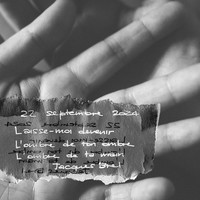 22 septembre 2024
Laisse-moi devenir
L'ombre de ton ombre
L'ombre de ta main
Jacques Brel